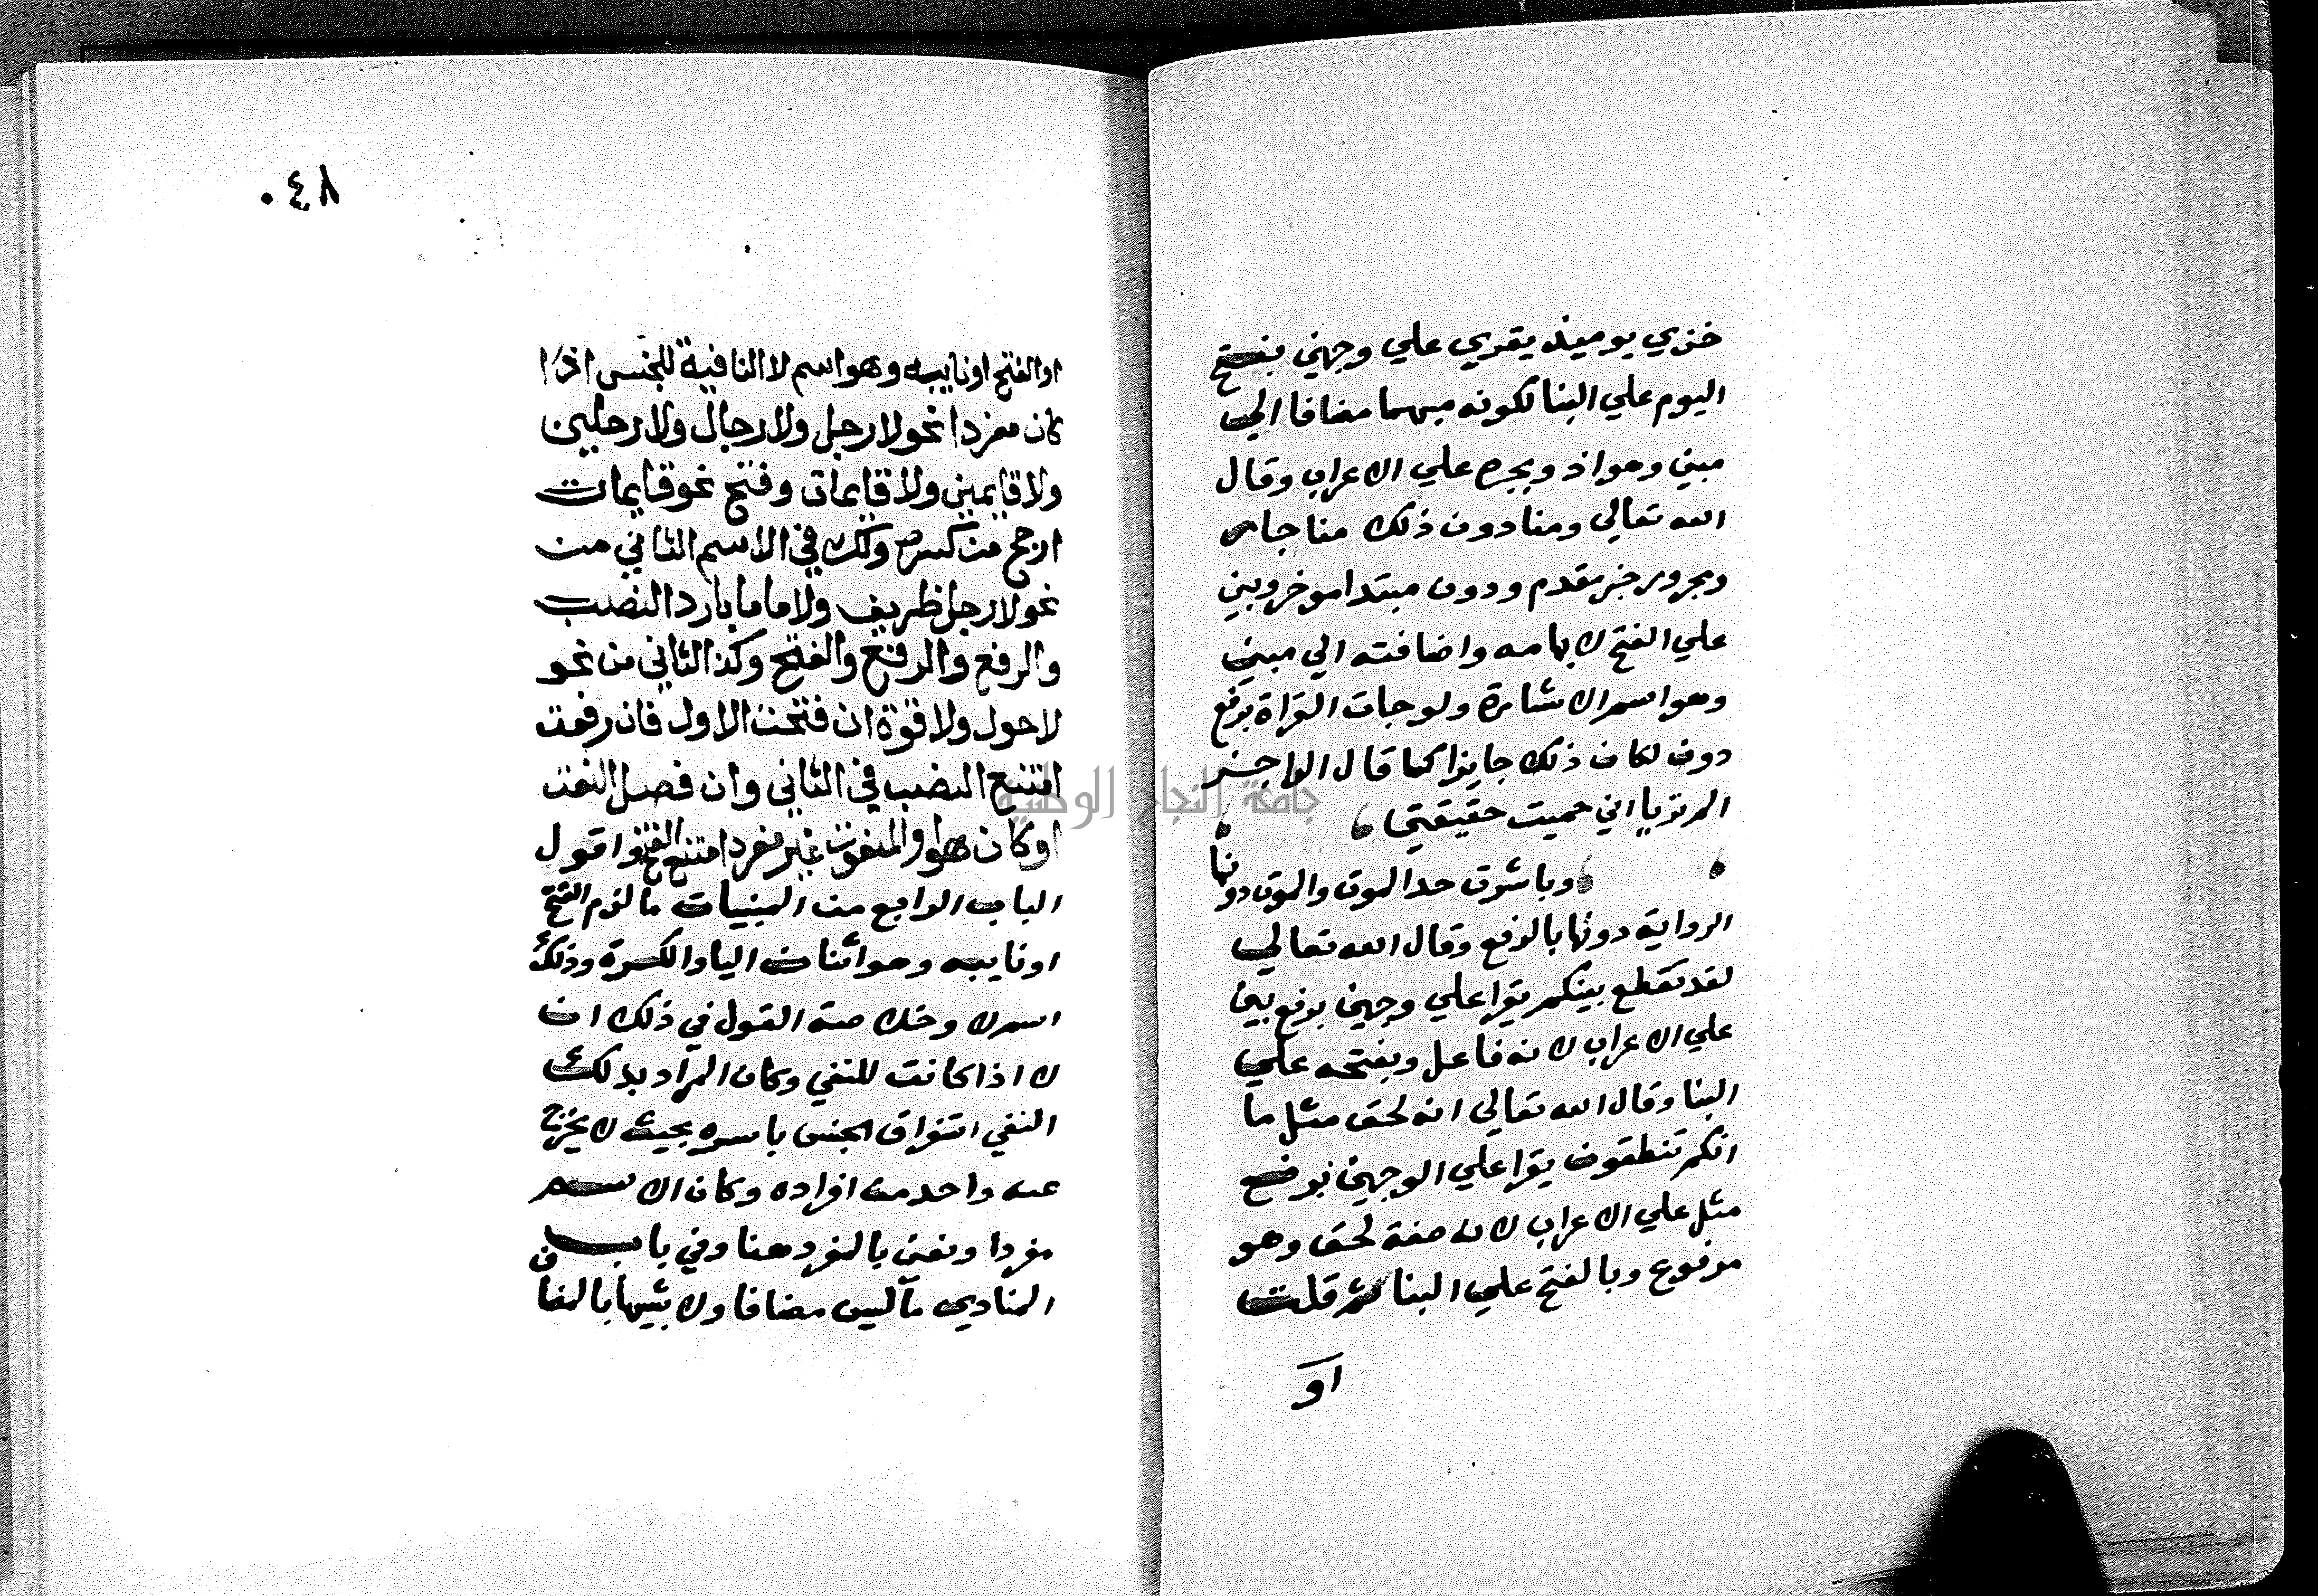 خزي يوميذ يقري علي وجهين بفتح
اليوم علي البنا لكونه مبهما مضافا الي
مبني وهو اذ وبجره علي الاعراب وقال
الله تعالي ومنا دون ذلك منا جار
ومجرور خبر مقدم ودون مبتدا موخر وبني
علي الفتح لابهامه واضافته الي مبني
وهو اسم الاشارة ولو جات القراة برفع
دون لكان ذلك جايزا كما قال الراجز
الم تريا اني حميت حقيقتي
وباشرت حد الموت والموت دونها
الرواية دونها بالرفع وقال الله تعالي
لقد تقطع بينكم يقرا علي وجهين برفع بين
علي الاعراب لانه فاعل وبفتحه علي
البنا وقال الله تعالي انه لحق مثل ما
انكم تنطقون يقرا علي الوجهين برفع
مثل علي الاعراب لانه صفة لحق وهو
مرفوع وبالفتح علي البنا ثم قلت
او
٠٤٨
او الفتح او نايبه وهو اسم لا النافية للجنس اذا
كان مفردا نحو لا رجل ولا رجال ولا رجلين
ولا قايمين ولا قايمات وفتح نحو قايمات
ارجح من كسره ولك في الاسم الثاني من
نحو لا رجل ظريف ولا ما ما باردا النصب
والرفع والرفع والفتح وكذا الثاني من نحو
لا حول ولا قوة ان فتحت الاول فان رفعت
امتنع النصب في الثاني وان فصل النعت
او كان هو او المنعوت غير مفرد امتنع الفتح واقول
الباب الرابع من المبنيات ما لزم الفتح
او نايبه وهو اثنان اليا والكسرة وذلك
اسم لا وخلاصة القول في ذلك ان
لا اذا كانت للنفي وكان المراد بذلك
النفي استغراق الجنس باسره بحيث لا يخرج
عنه واحد من افراده وكان الاسم
مفردا ونعني بالمفرد هنا وفي باب
المنادي ما ليس مضافا ولا شبيها بالمضاف
جامعة النجاح الوطنية